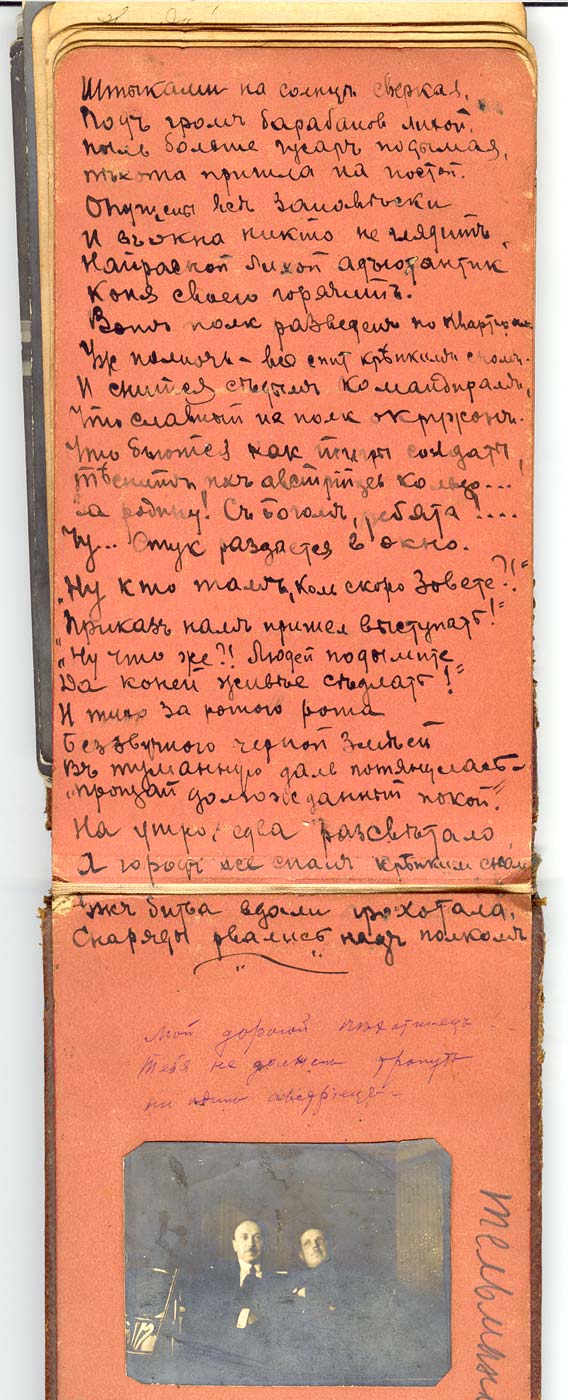 Штыками на солнцѣ сверкая,
Подъ громъ барабанов лихой,
пыль больше гусаръ подымая,
пѣхота пришла на постой.
Опущены всѣ занавѣски
И въ окна никто не глядитъ
Напрасной лихой адъютантик
Коня своего горячитъ.
полк разведенъ по
Ужъ полночь – все спит крѣпкимъ сномъ.
И снится сѣдымъ командирамъ,
Что славный их полк окружонъ.
Что бьются как тигры солдаты,
Тѣснитъ ихъ австрійцев кольцо...
За родину! Съ Богомъ, ребята!....
Чу... Стук раздается в окно.
„Ну кто тамъ, ком скоро Зовете?!"
„Приказъ намъ пришел выступать!"
„Ну что же?! Людей подымите
Да коней живѣе сѣдлать!"
И тихо за ротою рота
Беззвучною черной змѣей
Въ туманную даль потянулась –
„прощай долгожданный покой."
На утро, едва разсвѣтало
А городъ все спалъ крѣпким сномъ
Ужъ битва вдали грохотала,
Снаряды рвались надъ полкомъ
Мой дорогой пѣхотинецъ
Тебя не долженъ тронуть
ни одинъ австріецъ –
Тельман